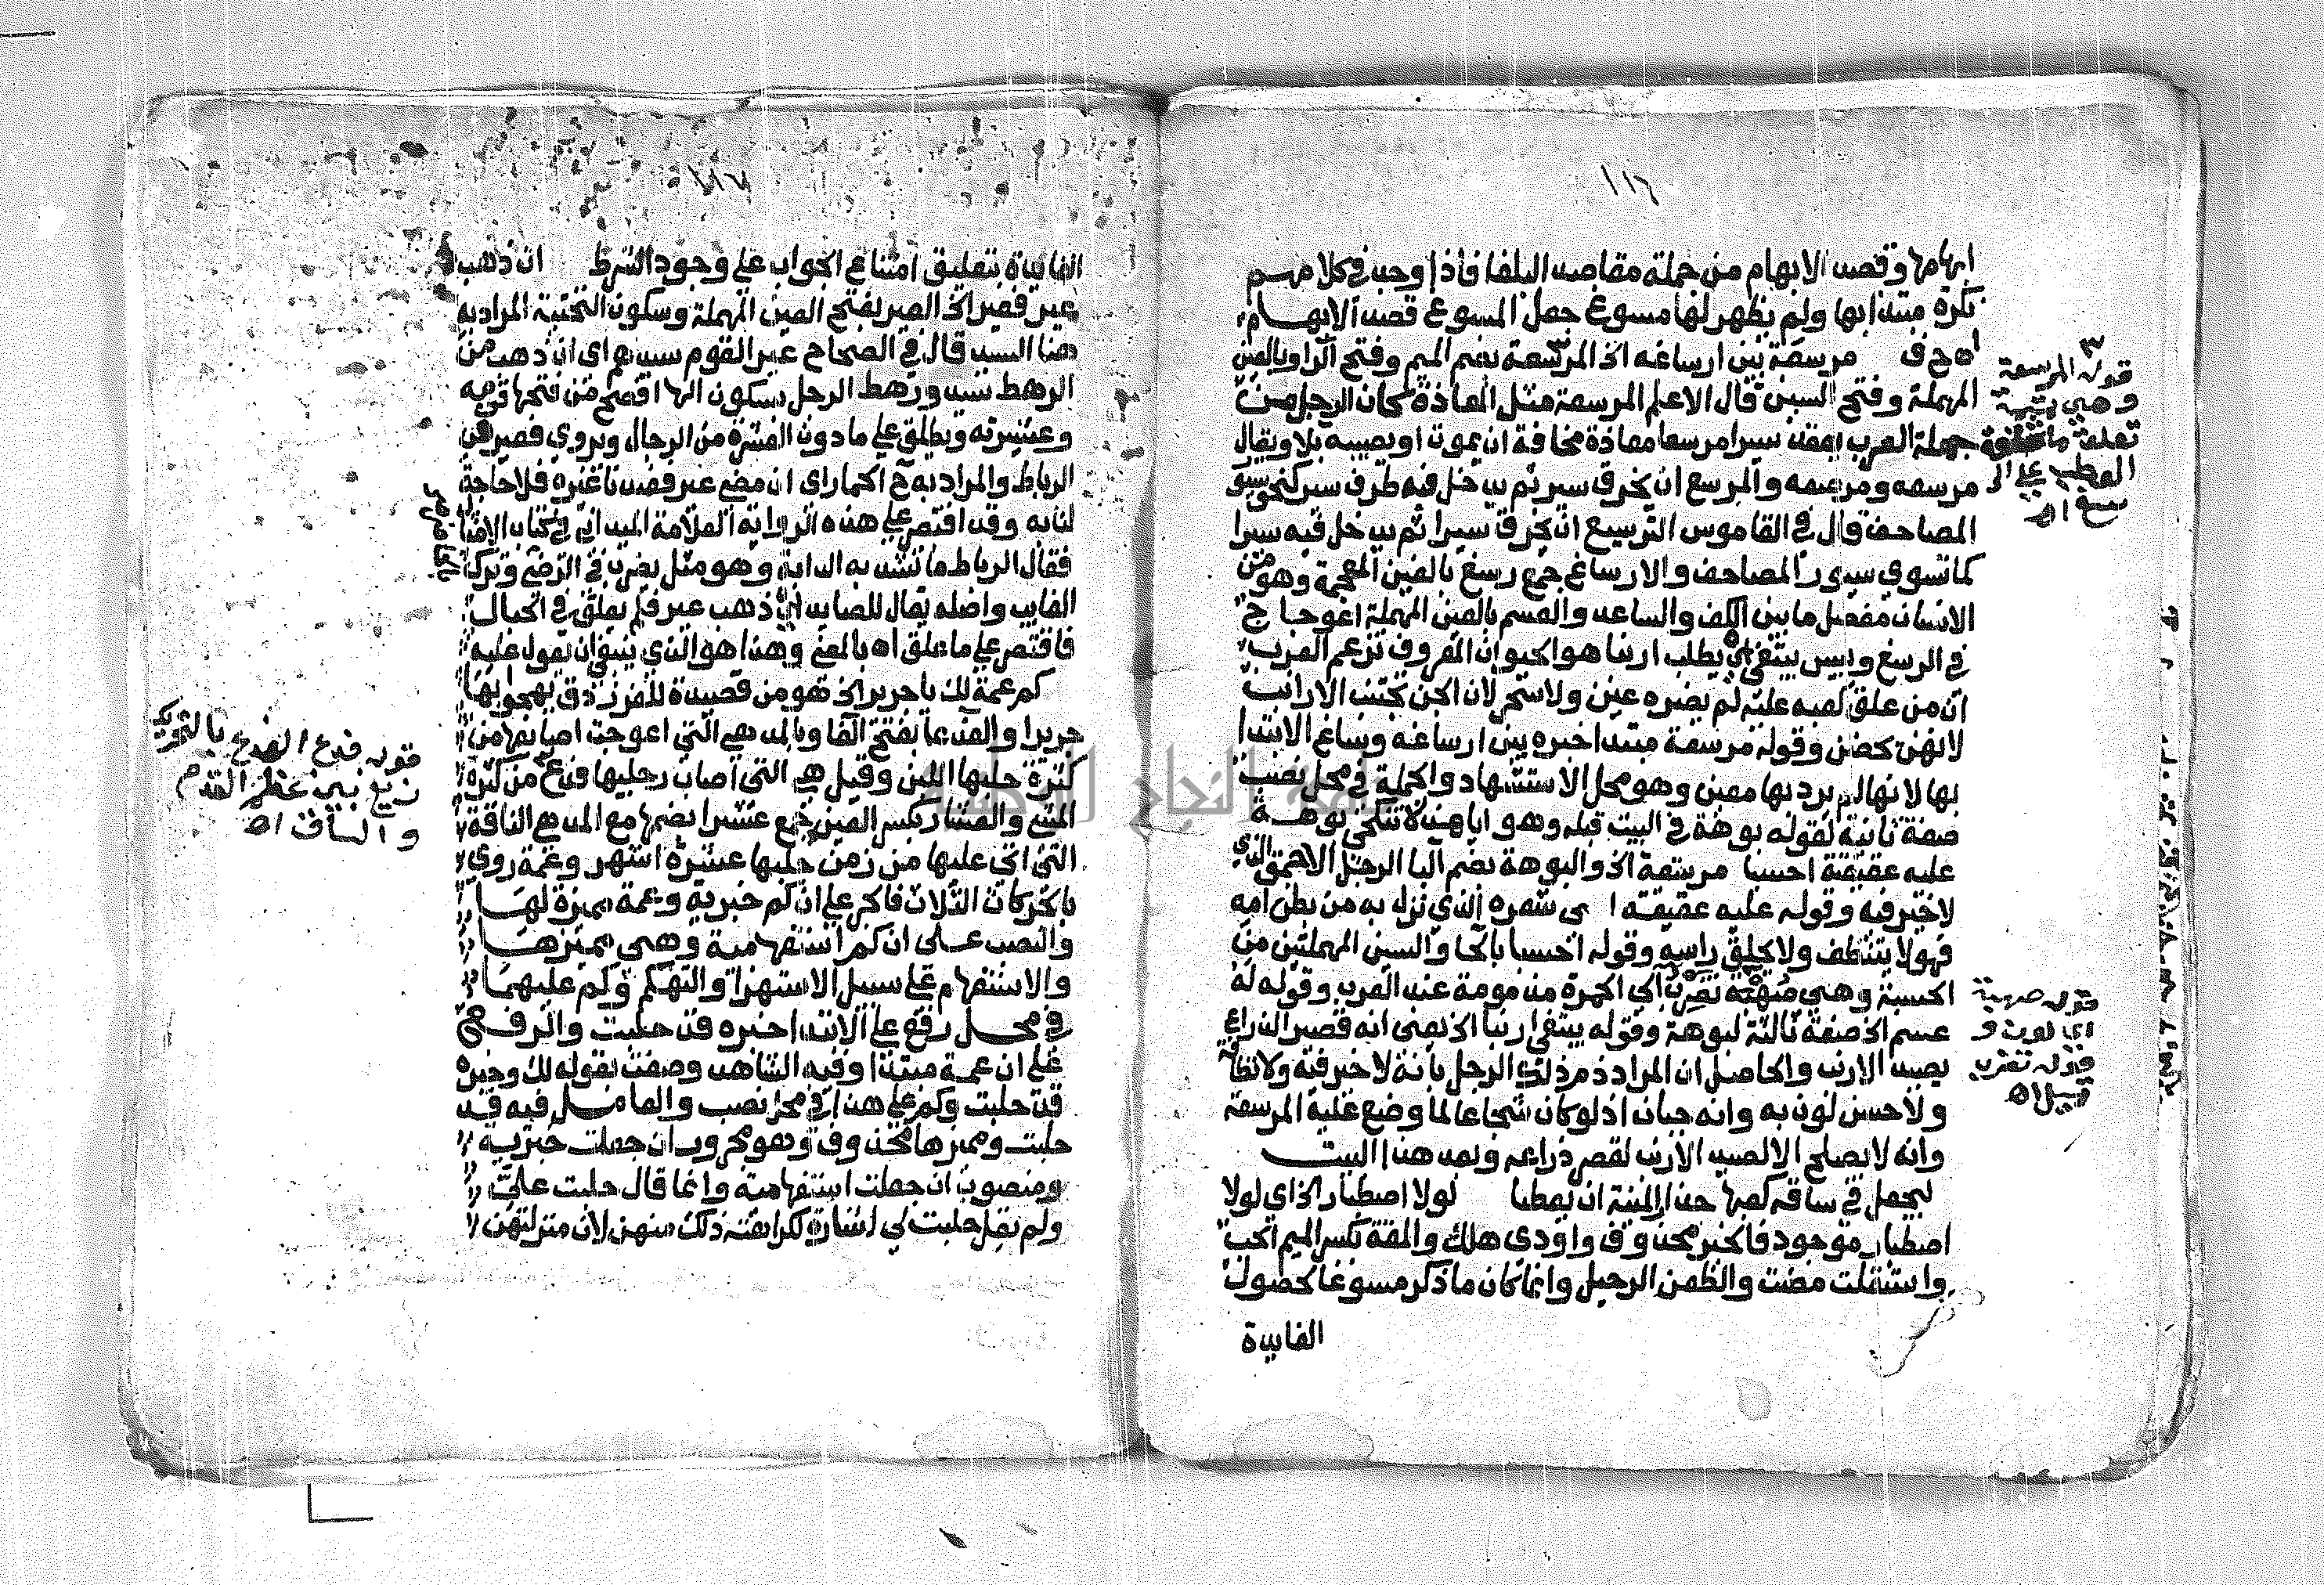 ١١٦
ابهامها وقصد الابهام من جملة مقاصد البلغا فاذا وجد في كلامهم
نكرة مبتدابها ولم يظهر لها مسوغ جعل المسوغ قصد الابهام
اه ح ف مرسعة بين ارساغه الخ المرسعة بضم الميم وفتح الرا وبالعين
المهملة وفتح السين قال الاعلم المرسعة مثل المعاذة كان الرجل من
جهلة العرب يعقد سيرا مرسعا معاذة مخافة ان يموت او يصيبه بلا ويقال
مرسعه ومرصعه والمرسع ان يخرق سير ثم يدخل فيه طرف سير كنحو سيور
المصاحف قال في القاموس الترسيع ان يخرق سيرا ثم يدخل فيه سيرا
كما تسوي سيور المصاحف والارساغ جمع رسغ بالغين المعجمة وهو من
الانسان مفصل ما بين الكف والساعد والعسم بالعين المهملة اعوجاج
في الرسغ ويبس يبتغي اي يطلب ارنبا هو الحيوان المعروف تزعم العرب
ان من علق كعبه عليه لم يضره عين ولا سحر لان الجن تجتنب الارانب
لانهن يحضن وقوله مرسعة مبتدا خبره بين ارساغه وساغ الابتدا
بها لانها لم يرد بها معين وهو محل الاستشهاد والجملة في محل نصب
صفة ثانية لقوله بوهة في البيت قبله وهو اياهند لا تنكحي بوهة
عليه عقيقته احسبا مرسعة الخ والبوهة بضم البا الرجل الاحمق الذي
لا خير فيه وقوله عليه عقيقته اي شعره الذي نزل به من بطن امه
فهو لا يتنظف ولا يحلق راسه وقوله احسبا بالحا والسين المهملتين من
الحسبة وهي صهبة تضرب الي الحمرة مذمومة عند العرب وقوله له
عسم الخ صفة ثالثة لبوهة وقوله يبتغي ارنبا الخ يعني انه قصير الذراع
يصيد الارنب والحاصل ان المراد ذم ذلك الرجل بانه لا خير فيه ولا نظافة
ولا حسن لون به وانه جبان اذ لو كان شجاعا لما وضع عليه المرسعة
وانه لا يصلح الا لصيد الارنب لقصر ذراعه وبعد هذا البيت
ليجعل في ساقه كعبها حذار المنية ان يعطبا لولا اصطبار الخ اي لولا
اصطبار موجود فالخبر محذوف واودى هلك والمقة بكسر الميم الحب
واستقلت مضت والظعن الرحيل وانما كان ما ذكر مسوغا لحصول
الفايدة
قوله المرسعة
وهي يتيمة
تعلق مخافة
العطب على الر
سغ اه
قوله صهبة
اي لون و
قوله تضرب
تميل اه
١١٧
الفايدة بتعليق امتناع الجواب على وجود الشرط ان ذهب
عير فعير الخ العير بفتح العين المهملة وسكون التحتية المراد به
هنا السيد قال في الصحاح عير القوم سيدهم اي ان ذهب من
الرهط سيد ورهط الرجل بسكون الها افصح من فتحها قومه
وعشيرته ويطلق على ما دون العشرة من الرجال ويروي فعير في
الرباط والمراد به ح الحمار اي ان مضى عير فقد ناغيره فلا حاجة
لنا به وقد اقتصر على هذه الرواية العلامة الميداني في كتاب الامثال
فقال الرباط ما تشد به الدابة وهو مثل يضرب في الرضي وترك
الغايب واصله يقال للصايد ان ذهب عير فلم يعلق في الحبال
فاقتصر على ما علق اه بالمعنى وهذا هو الذي ينبغي ان يعول عليه
كم عمة لك يا جرير الخ هو من قصيدة للفرزدق يهجو بها
جريرا والفدعا بفتح الفا وبالمد هي التي اعوجت اصابعها من
كثرة حلبها اللبن وقيل هي التي اصاب رجليها فدع من كثرة
المشي والعشار بكسر العين جمع عشرا بضمها مع المد هي الناقة
التي اتى عليها من زمن حملها عشرة اشهر وعمة روي
بالحركات الثلاث فالجر على ان كم خبرية وعمة مميزة لها
والنصب على ان كم استفهامية وهي مميزها
والاستفهام على سبيل الاستهزا والتهكم وكم عليهما
في محل رفع على الابتدا خبره قد حلبت والرفع
على ان عمة مبتدا وفيه الشاهد وصفت بقوله لك وخبره
قد حلبت وكم على هذا في محل نصب والعامل فيه قد
حلبت ومميزها محذوف وهو مجرور ان جعلت خبرية
ومنصوب ان جعلت استفهامية وانما قال حلبت علي
ولم يقل حلبت لي اشارة لكراهته ذلك منهن لان منزلتهن
قوله فدع الفدع بالتحريك
زيغ بين عظم القدم
والساق اه
جامعة النجاح الوطنية